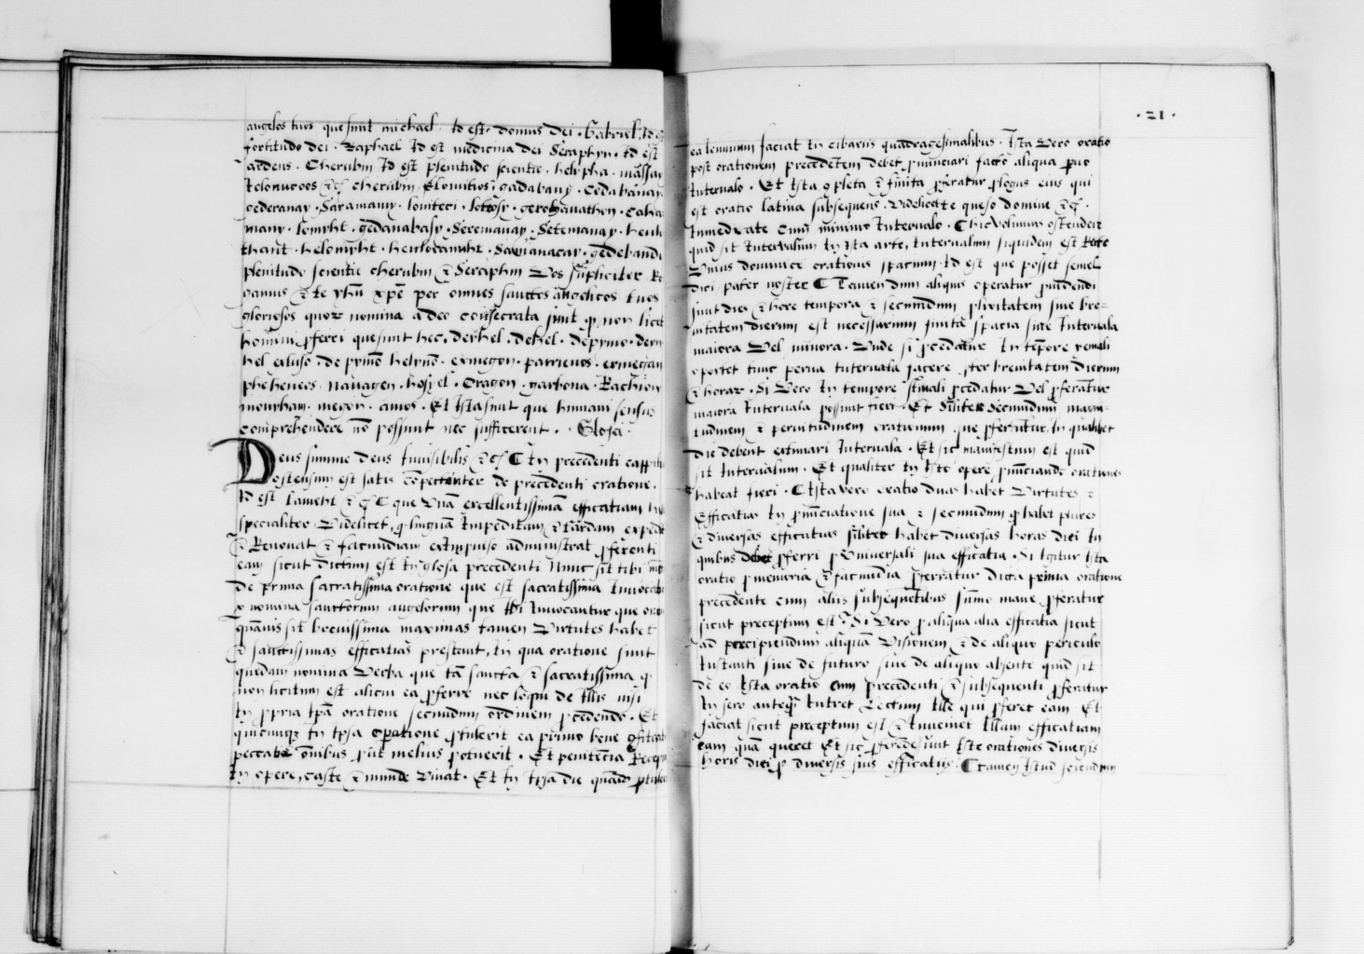 angelos tuos que sunt michael · Id est · domus dei · Gabriel · Id
fortitudo dei · Raphael Id est medicina dei Seraphyn · Id est
ardens · Cherubin Id est plenitudo scientie · helypha · massay
cherubin · gadabany · Cedabanay
cederanay · Saramany · lomteci · gerohauathon · Caha
many · lomyht · gedanabasy · Seremanay · Setemanay · henl
thant · helomyht · henloramyht · Samanacay · gedebandi
plenitudo scientie cherubin & Seraphin Vos supliciter Ro
gamus & te yhū xpē per omnes sanctos angelicos tuos
gloriosos quorz nomina a deo consecrata sunt q non licet
homini pferri que sunt hec · derhel · dehel · depymo · dern
hel exluso · de pymō helymō · exmegon · parrienos · exmegan
pheheneos · nauagen · hosyel · Oragon · garbona · Rathion
monyham · megon · amos · Et Ista sunt que humani sensus
comprehendere nō possunt nec sufficerent · · Glosa ·
Deus summe deus Inuisibilis &c C In precedenti capitu
ostensum est satis competenter de precedenti oratione ·
Id est lameht &c C que Vnā excellentissimā efficatiam h
specialiter Videlicet, q linguā Impeditam & tardam expedit
& Renouat & facundiam eximpuiso administrat pferenti
eam sicut dictum est In glosa precedenti Nunc sit tibi
de prima sacratissima oratione que est sacratissima Inuoca
nomina sanctorum angelorum que Ibi Inuocantur que
quāuis sit breuissima maximas tamen Virtutes habet
& sanctissimas efficatias prestent, In qua oratione sunt
quedam nomina Verba que tā sancta & sacratissima q
non licitum est alicui ea pferre nec loqui de Illis nisi
In ppria Ipā oratione secundum ordinem pcedendo · Et
quicunqz In Ipsa opatione ptulerit ea primo bene
peccatis omnibus put melius potuerit · Et penitēcia Recep
In opere, caste & munde Viuat · Et In Ipsa die quādo ptul
· 21 ·
ea Ieiunium faciat In cibariis quadragesimalibus · Ista Vero oratio
post orationem precedētem debet pnunciari facto aliquo puo
Interualo · Et Ista completa & finita pferatur plogus eius qui
est oratio latina subsequens · Videlicet te queso domine &c ·
Inmediate cum minimo Interualo · C hic volumus ostendere
quid sit Interuallum In Ista arte, Interuallum siquidem est
Vnius dominice orationis spacium · Id est que posset semel
dici pater noster C Tamen dum aliquis operatur
sunt dies & hore tempora & secundum plixitatem siue bre-
uitatem dierum est necessarium finita spacia siue Interuala
maiora Vel minora · Vnde si procedatur In tēpore yemali
oportet tunc perua Interuala facere pter breuitatem dierum
& horarz · Si Vero In tempore procedatur Vel pferatur
maiora Interuala possunt fieri · Et similiter secundum magni-
tudinem & peruitudinem orationum que pferātur In qualibet
die debent extimari Interuala · Et sic manifestum est quid
sit Interuallum · Et qualiter In Isto opere pnunciando orationes
habeat fieri · C Ista vero oratio duas habet Virtutes &
Efficatias In pnunciatione sua & secundum q habet plures
& diuersas efficatias similiter habet diuersas horas diei In
quibus debet pferri p Vniuersali sua efficatia · Si Igitur Ista
oratio p memoria & facundia pferratur dicta prima oratione
precedente cum aliis subsequētibus sūmo mane pferatur
sicut preceptum est · Si Vero p aliqua alia efficatia sicut
ad percipiendum aliquā Visionem & de aliquo periculo
Instanti siue de futuro siue de aliquo absente quid sit
de eo Ista oratio cum precedenti & subsequenti pferatur
In sero anteqz Intret Lectum Ille qui pferet eam Et
faciat sicut preceptum est & Inueniet Illam efficatiam
eam quā queret Et sic pferēde sunt Iste orationes diuersis
horis diei p diuersis suis efficatiis · C tamen Istud sciendum